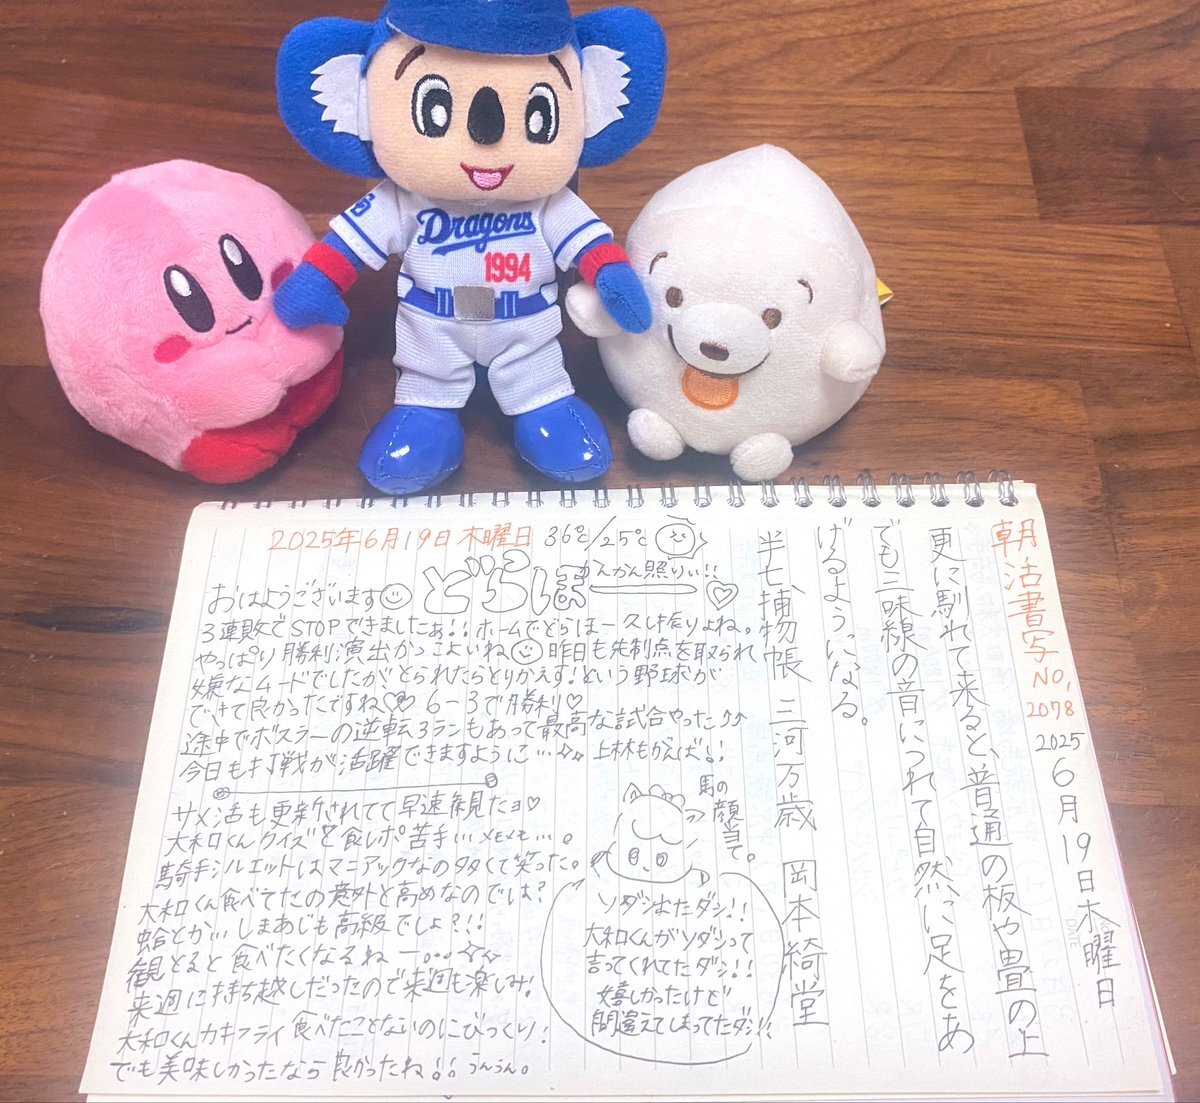 Dragons
1994
朝活書写
NO,
2078
2025
6月19日木曜日
更に馴れて来ると、普通の板や畳の上
でも三味線の音につれて自然に足をあ
げるようになる。
半七捕物帳 三河万歳 岡本綺堂
2025年6月19日木曜日 36℃/25℃
かんかん照りぃ!!
おはようございます
どらほー
3連敗でSTOPできましたぁ!!ホームでどらほー久し振りよね。
やっぱり勝利演出かっこよいね 昨日も先制点を取られ
嫌なムードでしたがとられたらとりかえす!という野球が
できて良かったですね♡♡ 6-3で勝利♡
途中でボスラーの逆転3ランもあって最高な試合やった♪♪
今日も打戦が活躍できますように… 上林もがんば!!
サメ活も更新されてて早速観たョ♡
大和くんクイズと食レポ苦手…メモメモ…。
騎手シルエットはマニアックなのタタくて笑った。
大和くん食べてたの意外と高めなのでは?
蛤とか… しまあじも高級でしょ?!!
観とると食べたくなるねー
来週に持ち越しだったので来週も楽しみ!
大和くんカキフライ食べたことないのにびっくり!
でも美味しかったなら良かったね!!うんうん。
馬の
顔当て。
ソダシはたダシ!!
大和くんがソダシって
言ってくれてたダシ!!
嬉しかったけど
間違えてしまってたダシ!!